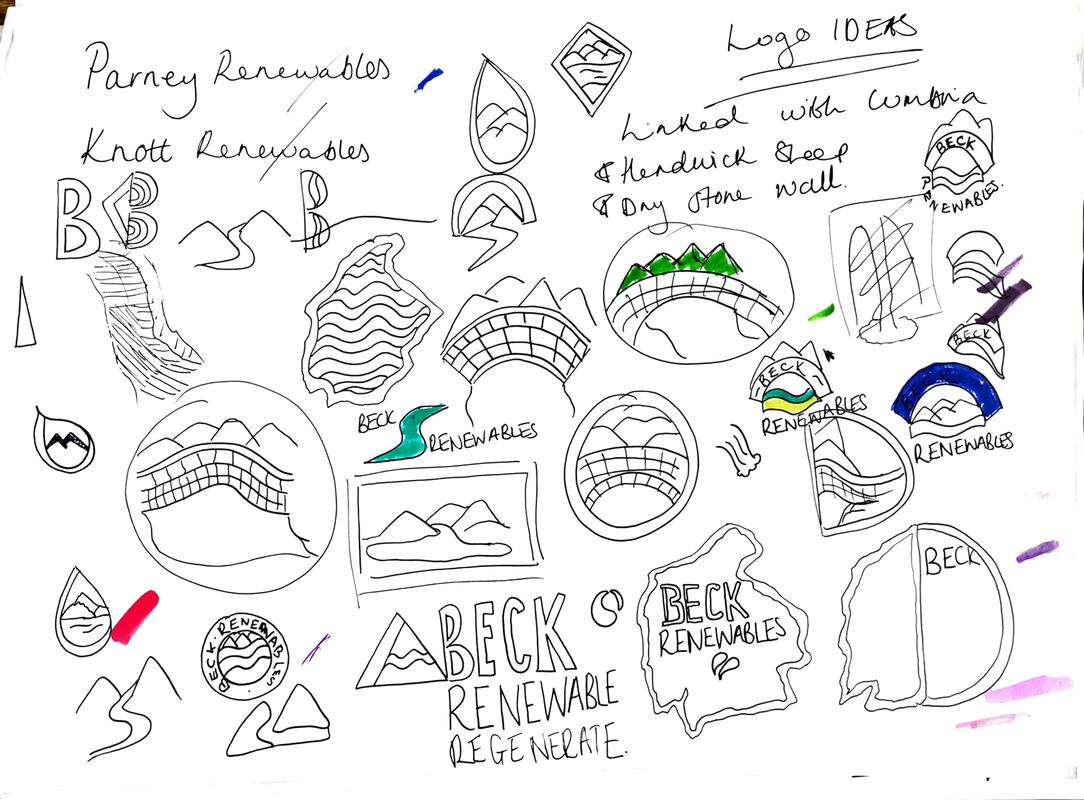 Parney Renewables
Knott Renewables
Logo IDEAS
Linked with Cumbria
Herdwick Sheep
Dry stone wall.
BECK
RENEWABLES.
B
B
B
BECK
BECK
RENEWABLES
BECK
RENEWABLES
BECK
RENEWABLES
BECK
BECK · RENEWABLES ·
BECK
RENEWABLE
REGENERATE.
BECK
RENEWABLES